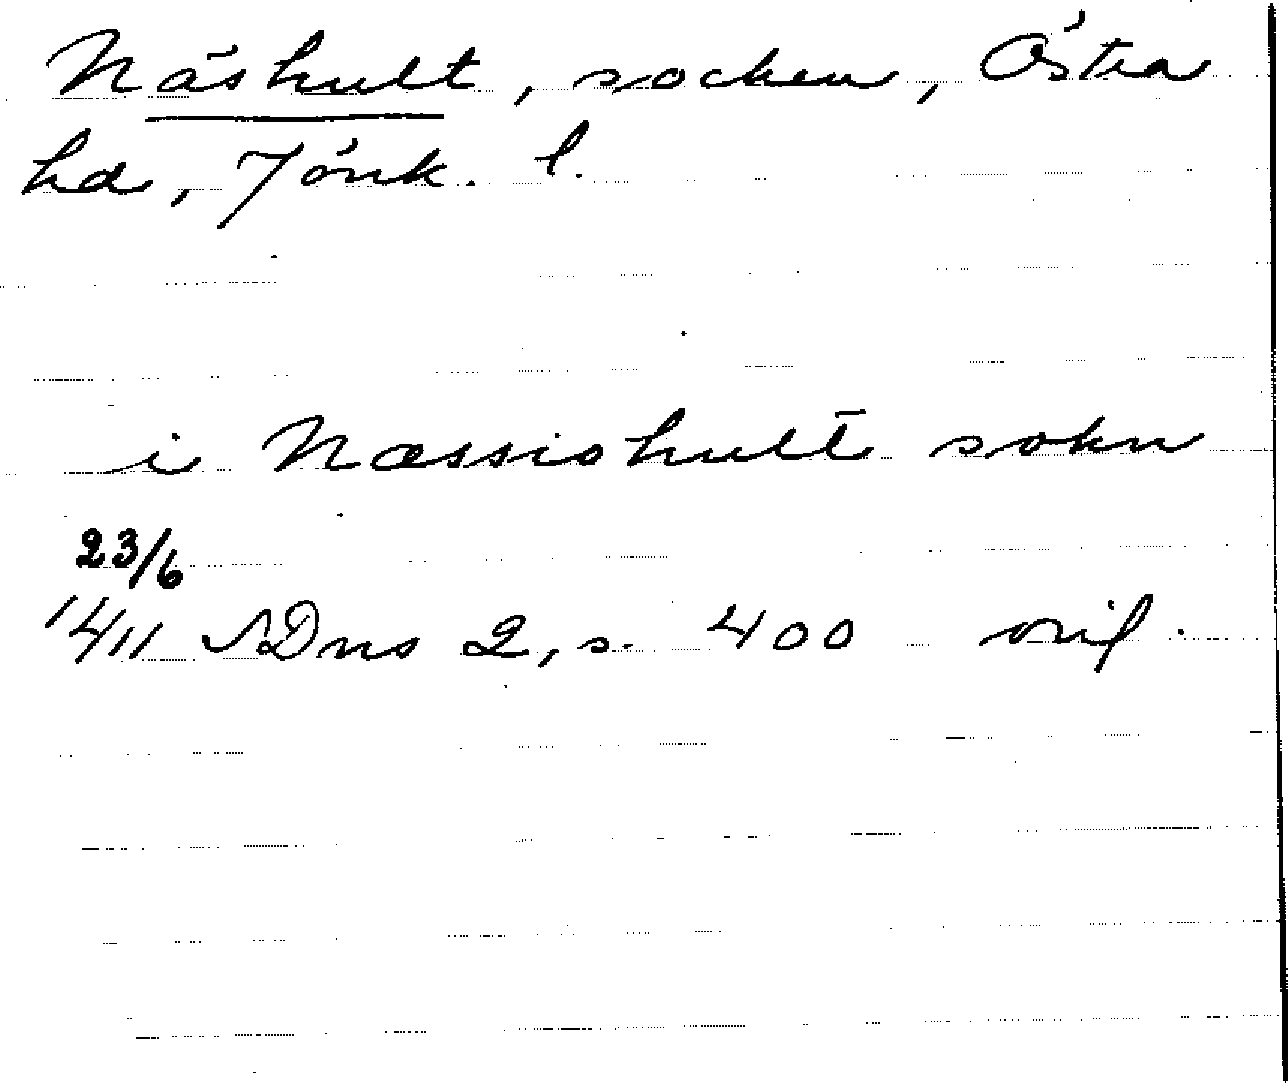 Näshult, socken, Östra
hd, Jönk. l.
i Næssiohult sokn
23/6
1411 SDns 2, s. 400 orig.